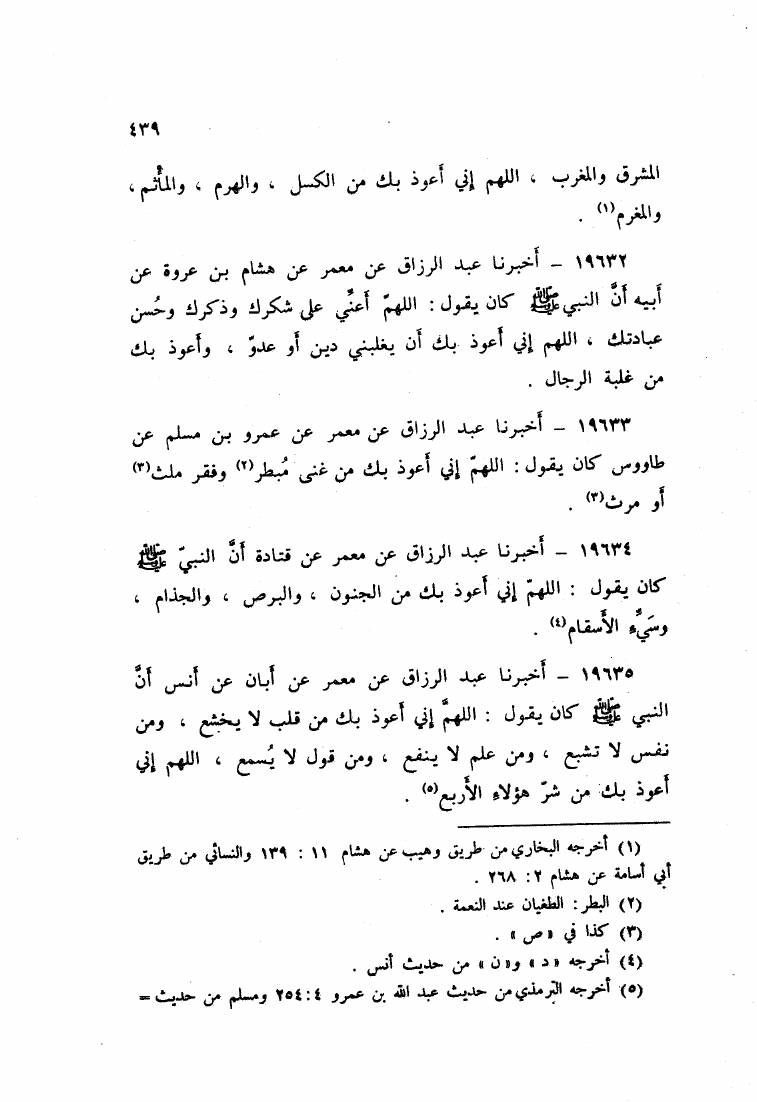 ٤٣٩
المشرق والمغرب ، اللهم إني أعوذ بك من الكسل ، والهرم ، والمأثم ،
والمغرم(١) .
١٩٦٣٢ – أخبرنا عبد الرزاق عن معمر عن هشام بن عروة عن
أبيه أنَّ النبي ﷺ كان يقول : اللهمّ أعنِّي على شكرك وذكرك وحُسن
عبادتك ، اللهم إني أعوذ بك أن يغلبني دين أو عدوّ ، وأعوذ بك
من غلبة الرجال .
١٩٦٣٣ – أخبرنا عبد الرزاق عن معمر عن عمرو بن مسلم عن
طاووس كان يقول : اللهمّ إني أعوذ بك من غنى مُبطر(٢) وفقر ملث(٣)
أو مرث(٣) .
١٩٦٣٤ – أخبرنا عبد الرزاق عن معمر عن قتادة أنَّ النبيّ ﷺ
كان يقول : اللهمّ إني أعوذ بك من الجنون ، والبرص ، والجذام ،
وسَيِّء الأسقام(٤) .
١٩٦٣٥ – أخبرنا عبد الرزاق عن معمر عن أبان عن أنس أنَّ
النبي ﷺ كان يقول : اللهمَّ إني أعوذ بك من قلب لا يخشع ، ومن
نفس لا تشبع ، ومن علم لا ينفع ، ومن قول لا يُسمع ، اللهم إني
أعوذ بك من شرّ هؤلاء الأربع(٥) .
(١) أخرجه البخاري من طريق وهيب عن هشام ١١ : ١٣٩ والنسائي من طريق
أبي أسامة عن هشام ٢ : ٢٦٨ .
(٢) البطر : الطغيان عند النعمة .
(٣) كذا في « ص » .
(٤) أخرجه « د » و« ن » من حديث أنس .
(٥) أخرجه الترمذي من حديث عبد الله بن عمرو ٤ : ٢٥٤ ومسلم من حديث =